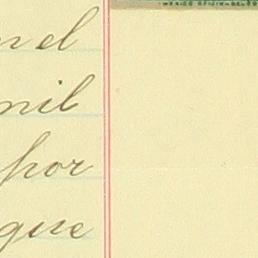 en el
mil
por
que